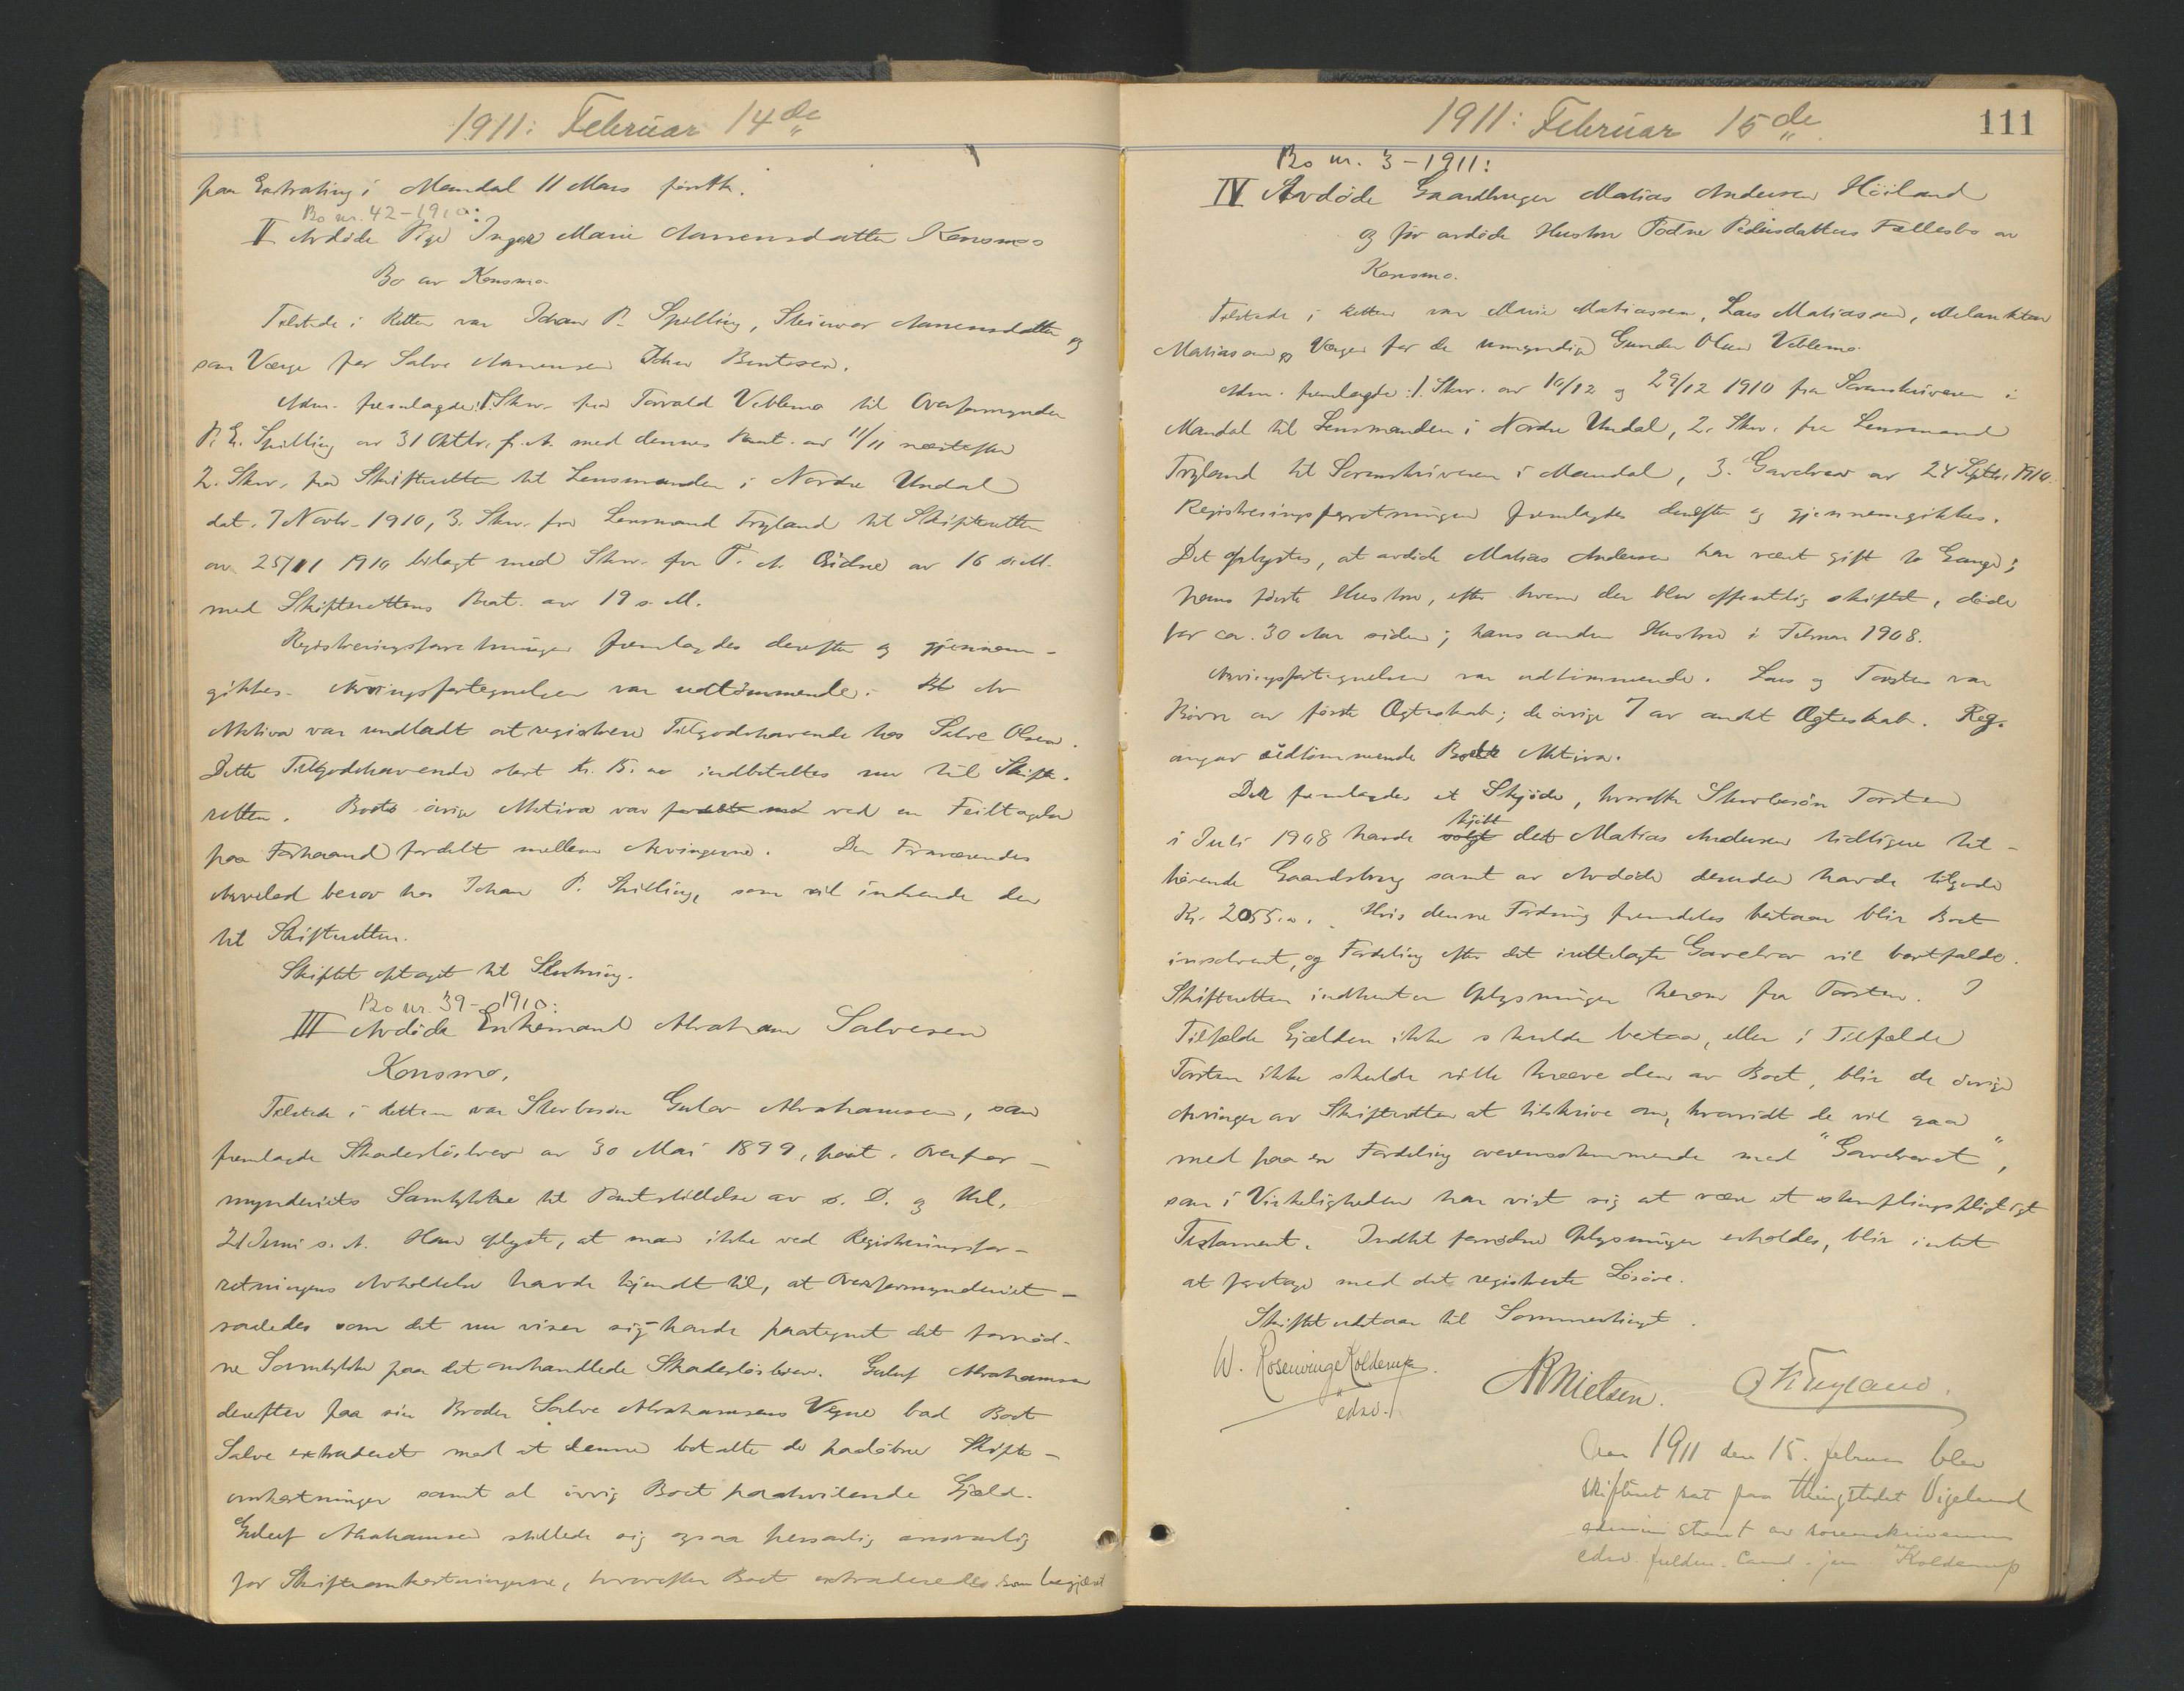 1911: Februar 14de
paa Extrating i Mandal 11 Mars förstk.
Bo nr. 42-1910:
II Avdöde Pige Inger Marie Aanensdatter Konsmos
Bo av Konsmo.
Tilstede i Retten var Johan P. Spilling, Steinvor Aanensdatter og
som Værge for Salve Aanensen John Bentsen.
Adm. fremlagde: 1. Skr. fra Torvald Veblemo til Overformynder
P. E. Spilling av 31 Oktbr. f. A. med dennes Paat. av 11/11 næstefter
2. Skr. fra Skifteretten til Lensmanden i Nordre Undal
dat. 7 Novbr. 1910, 3. Skr. fra Lensmand Tryland til Skifteretten
av 25/11 1910 bilagt med Skr. fra T. A. Eidsaa av 16 s. M.
med Skifterettens Paat. av 19 s. M.
Registreringsforretningen fremlagdes derefter og gjennem-
gikkes. Arvingsfortegnelsen var udtömmende. Av
Aktiva var undladt at registrere Tilgodehavende hos Salve Olsen.
Dette Tilgodehavende stort Kr. 15. indbetaltes nu til Skifte-
retten. Boets övrige Aktiva var ved en Feiltagelse
paa Forhaand fordelt mellem Arvingerne. Den Fraværendes
Arvelod beror hos Johan P. Spilling, som vil indsende den
til Skifteretten.
Skiftet optaget til Slutning.
Bo nr. 39-1910:
III Avdöde Enkemand Abraham Salvesen
Konsmo.
Tilstede i Retten var Sterbesön Gulov Abrahamsen, som
fremlagde Skadeslösbrev av 30 Mai 1899, paat. Overfor-
mynderiets Samtykke til Pantstillelse av s. D. og thl.
21 Juni s. A. Han oplyste, at man ikke ved Registreringsfor-
retningens Avholdelse havde kjendt til, at Overformynderiet -
saaledes som det nu viser sig - havde paategnet det fornöd-
ne Samtykke paa det omhandlede Skadeslösbrev. Guluf Abrahamsen
derefter paa sin Broder Salve Abrahamsens Vegne bad Boet
Salve extraderet mod at denne betalte de paalöbne Skifte-
omkostninger samt al övrig Boet paahvilende Gjæld.
Guluf Abrahamsen stillede sig ogsaa personlig ansvarlig
for Skifteomkostningerne, hvorefter Boet extraderedes som begjært
1911: Februar 15de
111
Bo nr. 3-1911:
IV Avdöde Gaardbruger Matias Andersen Höiland
og för avdöde Hustru Todne Pedersdatters Fællesbo av
Konsmo.
Tilstede i Retten var Marie Matiassen, Lars Matiassen, Melankton
Matiassen og Værgen for de umyndige Gunder Olsen Veblemo.
Adm. fremlagde: 1. Skr. av 10/12 og 29/12 1910 fra Sorenskriveren i
Mandal til Lensmanden i Nordre Undal, 2. Skr. fra Lensmand
Tryland til Sorenskriveren i Mandal, 3. Gavebrev av 24 Septbr. 1910.
Registreringsforretningen fremlagdes derefter og gjennemgikkes.
Det oplystes, at avdöde Matias Andersen har været gift to Gange;
hans förste Hustru, efter hvem der blev offentlig skiftet, döde
for ca. 30 Aar siden; hans anden Hustru i Februar 1908.
Arvingsfortegnelsen var udtömmende. Lars og Torsten var
Börn av förste Ægteskab; de övrige 7 av andet Ægteskab. Reg.
angav udtömmende Boets Aktiva.
Der fremlagdes et Skjöde, hvorefter Sterbesön Torsten
kjöbt
i Juli 1908 havde solgt det Matias Andersen tidligere til-
hörende Gaardsbrug samt av Avdöde desuden havde tilgode
Kr. 2055.00. Hvis denne Fordring fremdeles bestaar blir Boet
insolvent, og Fordeling efter det irettelagte Gavebrev vil bortfalde.
Skifteretten indhenter Oplysninger herom fra Torsten. I
Tilfælde Gjælden ikke skulde bestaa, eller i Tilfælde
Torsten ikke skulde ville kræve den av Boet, blir de övrige
Arvinger av Skifteretten at tilskrive om, hvorvidt de vil gaa
med paa en Fordeling overensstemmende med "Gavebrevet",
som i Virkeligheden har vist sig at være et stemplingspligtigt
Testament. Indtil fornödne Oplysninger erholdes, blir intet
at foretage med det registrerte Lösöre.
Skiftet utstaar til Sommertinget.
W. Rosenvinge Kolderup.
edsv.
Nielsen. K Tryland.
Aar 1911 den 15. februar blev
skifteret sat paa thingstedet Vigeland
administrert av sorenskriverens
edsv. fuldm. cand. jur. Kolderup